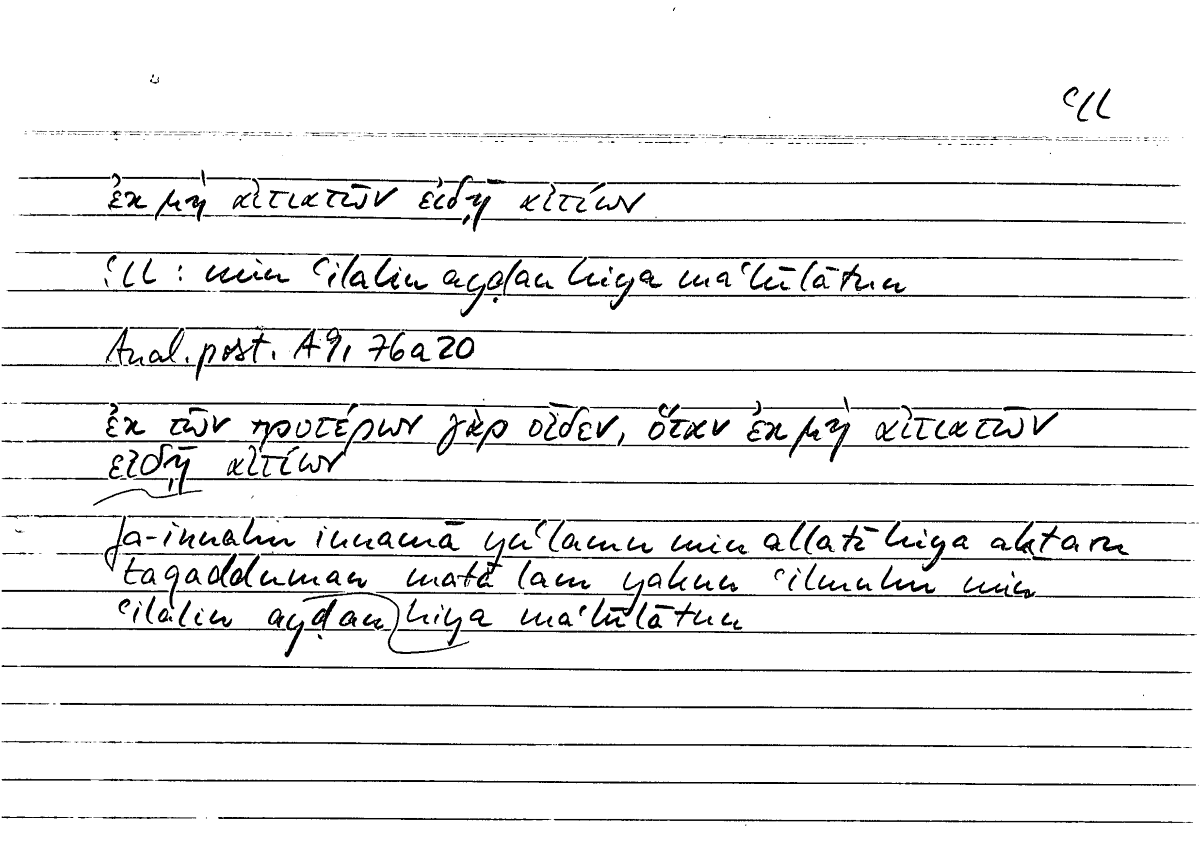 ʿLL
ἐκ μὴ αἰτιατῶν εἰδῇ αἰτίων
ʿLL : min ʿilalin ayḍan hiya maʿlūlātun
Anal. post. A 9, 76a20
ἐκ τῶν προτέρων γὰρ οἶδεν, ὅταν ἐκ μὴ αἰτιατῶν
εἰδῇ αἰτίων
fa-innahu innamā yuʿlamu min allatī hiya akṯaru
taqadduman matā lam yakun ʿilmuhu min
ʿilalin ayḍan hiya maʿlūlātun